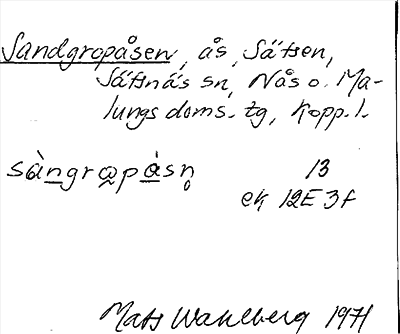 Sandgropåsen, ås, Säfsen,
Säfsnäs sn, Nås o. Ma-
lungs doms. tg, Kopp. l.
sàngrω̰pá̱sn̥ 13
ek 12E 3f
Mats Wahlberg 1971